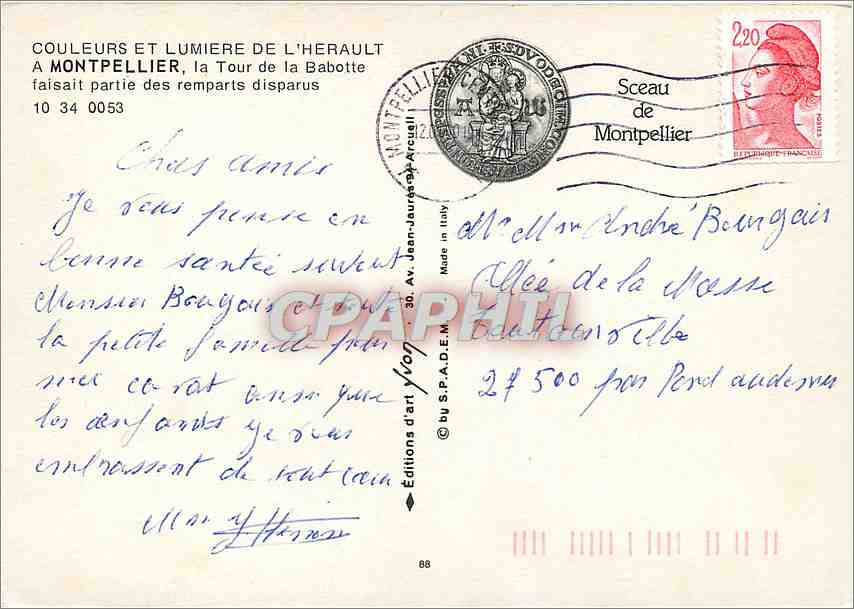 COULEURS ET LUMIERE DE L'HERAULT
A MONTPELLIER, la Tour de la Babotte
faisait partie des remparts disparus
10 34 0053
Chers amis
Je vous pense en
bonne santée surtout
Monsieur Bourgais et toute
la petite famille pour
moi ca vat ainsi que
les enfants je vous
embrassent de tout cœur
Mme
Éditions d'art Yvon - 30, Av. Jean-Jaurès-94 Arcueil
© by S.P.A.D.E.M. Made in Italy
88
MONTPELLIER
Sceau
de
Montpellier
2,20
POSTES
REPUBLIQUE FRANÇAISE
Mr Mme André Bourgais
Allée de la Masse
27500 par Pond audemer
CPAPHIL